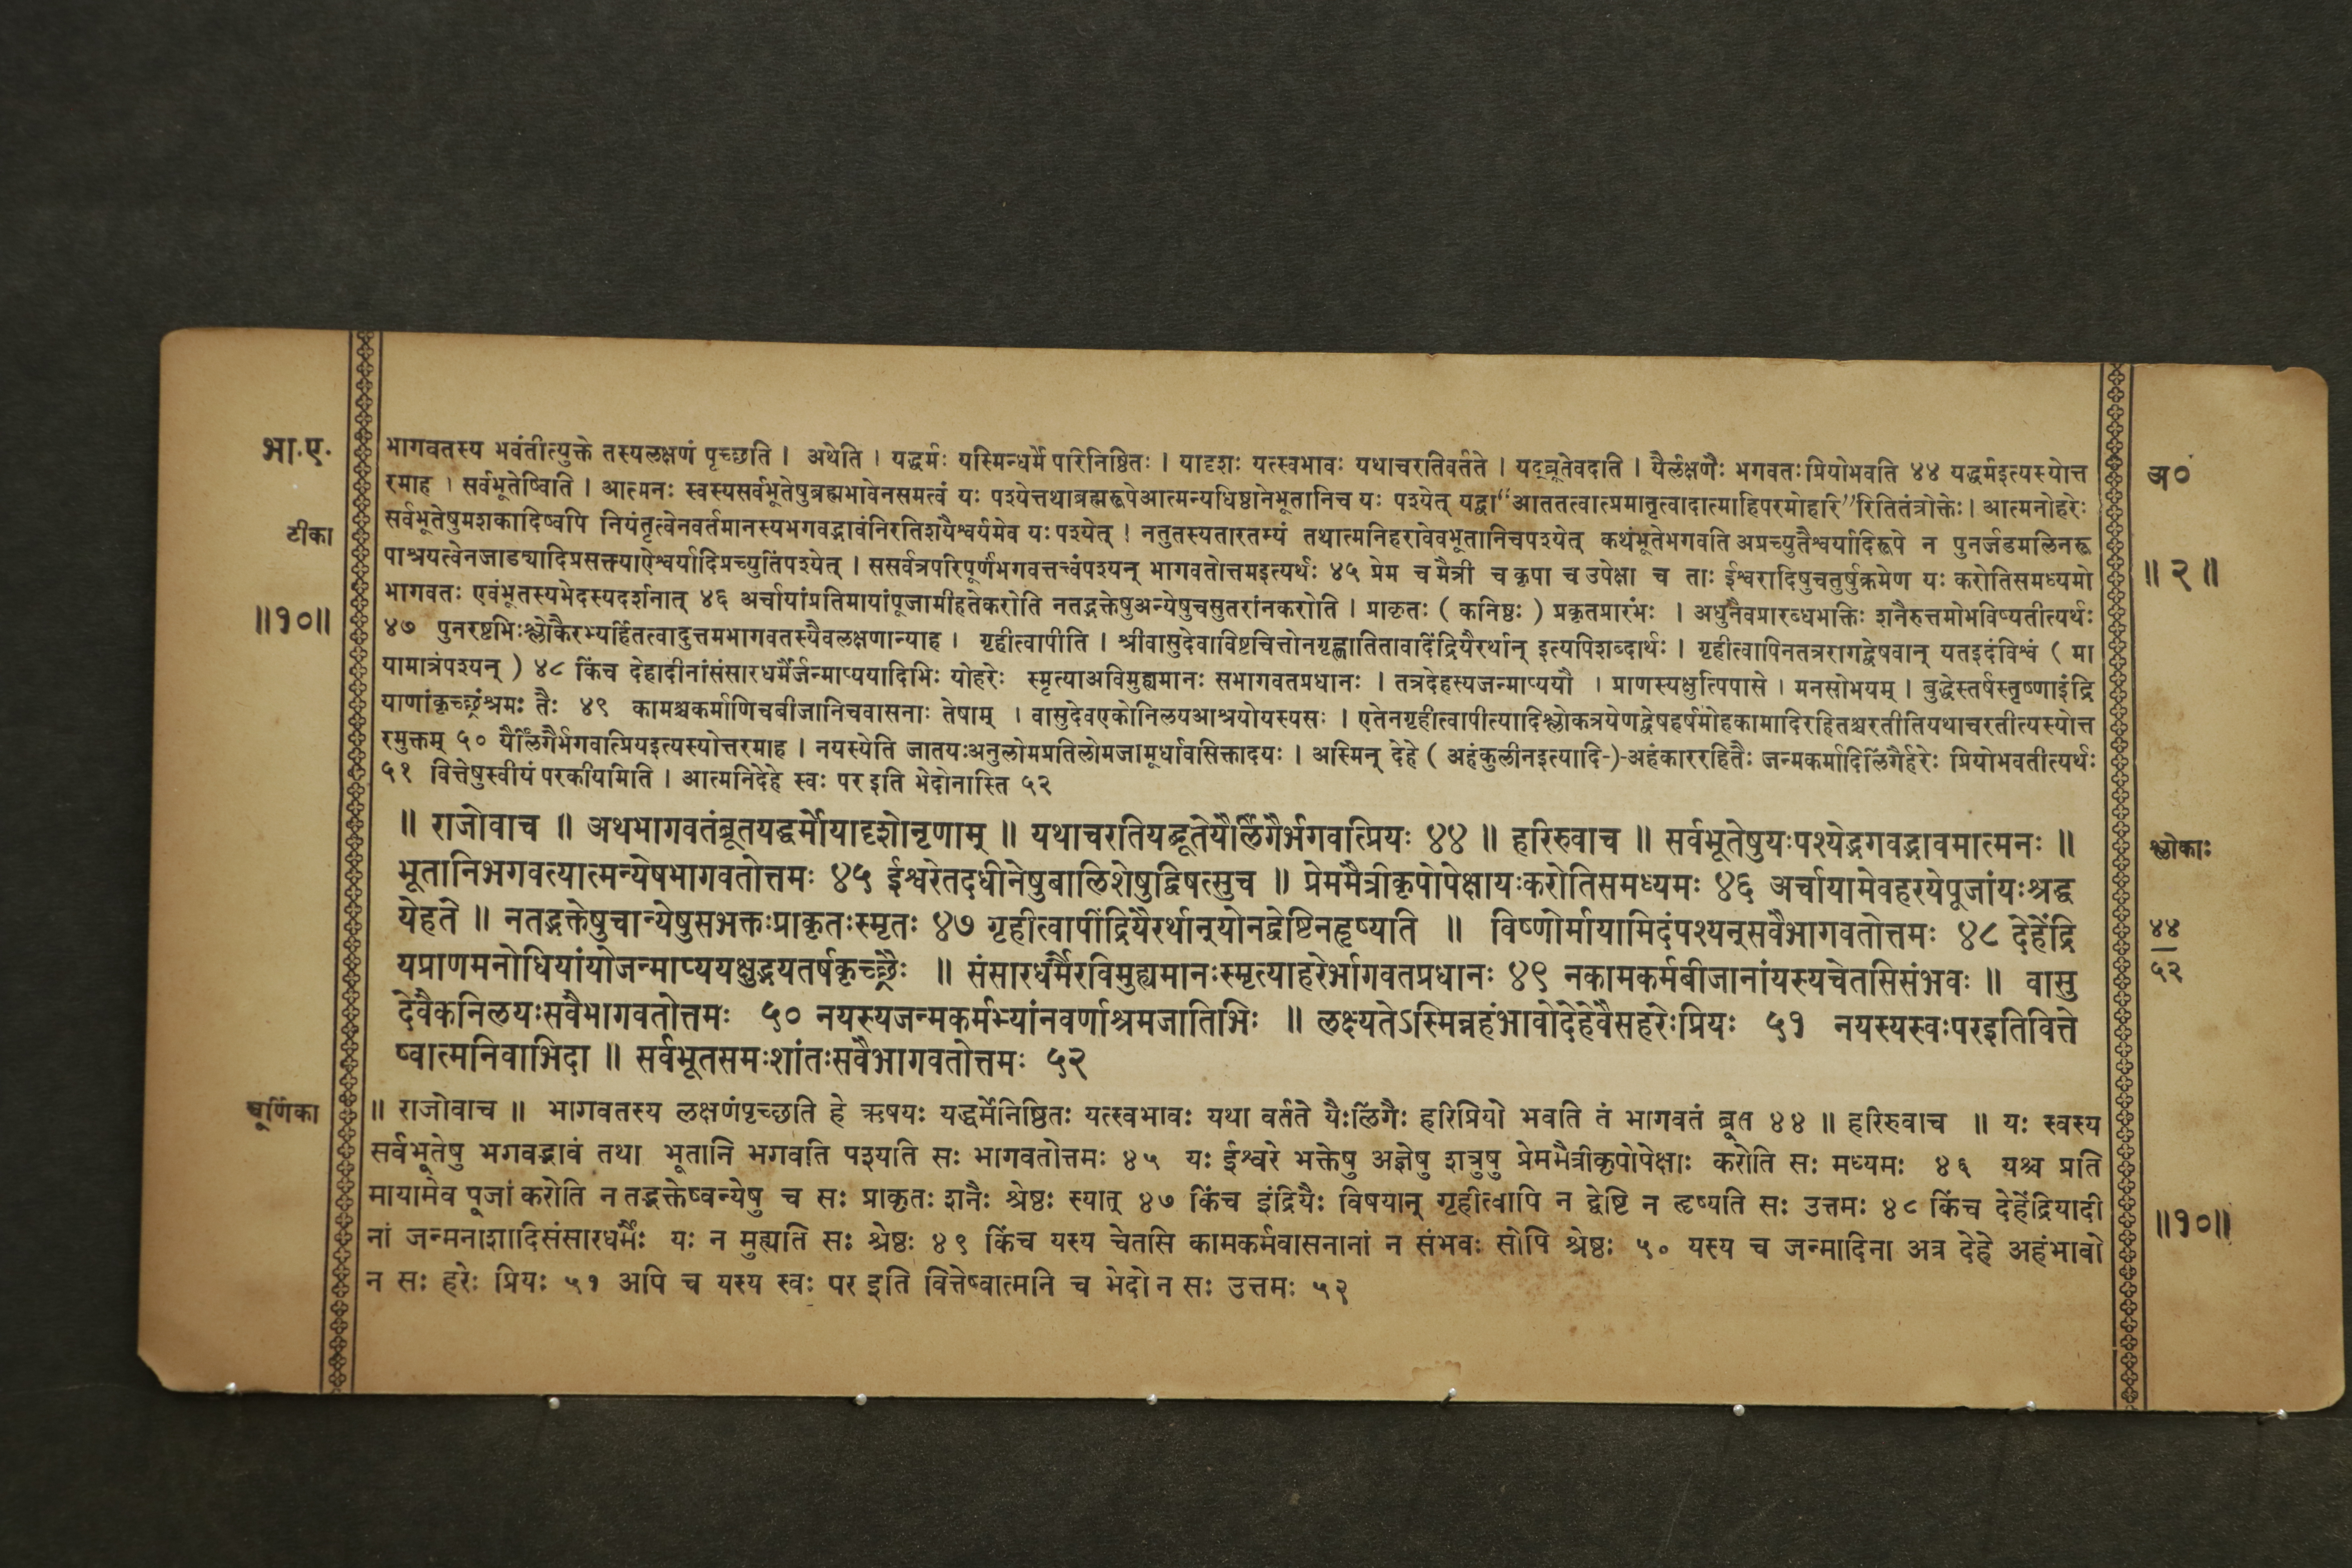 भा.ए.
टीका
॥१०॥
भागवतस्य भवंतीत्युक्ते तस्यलक्षणं पृच्छति । अथेति । यद्धर्मः यस्मिन्धर्मे परिनिष्ठितः । यादृशः यत्स्वभावः यथाचरतिवर्तते । यद्ब्रूतेवदति । यैर्लक्षणैः भगवतःप्रियोभवति ४४ यद्धर्मइत्यस्योत्त
रमाह । सर्वभूतेष्विति । आत्मनः स्वस्यसर्वभूतेषुब्रह्मभावेनसमत्वं यः पश्येत्तथाब्रह्मरूपेआत्मन्यधिष्ठानेभूतानिच यः पश्येत् यद्वा “आततत्वात्प्रमातृत्वादात्माहिपरमोहरि”रितितंत्रोक्तेः। आत्मनोहरेः
सर्वभूतेषुमशकादिष्वपि नियंतृत्वेनवर्तमानस्यभगवद्भावंनिरतिशयैश्वर्यमेव यःपश्येत् । नतुतस्यतारतम्यं तथात्मनिहरावेवभूतानिचपश्येत् कथंभूतेभगवति अप्रच्युतैश्वर्यादिरूपे न पुनर्जडमलिनरू
पाश्रयत्वेनजाड्यादिप्रसक्त्याऐश्वर्यादिप्रच्युतिंपश्येत् । ससर्वत्रपरिपूर्णभगवत्तत्त्वंपश्यन् भागवतोत्तमइत्यर्थः ४५ प्रेम च मैत्री च कृपा च उपेक्षा च ताः ईश्वरादिषुचतुर्षुक्रमेण यः करोतिसमध्यमो
भागवतः एवंभूतस्यभेदस्यदर्शनात् ४६ अर्चायांप्रतिमायांपूजामीहतेकरोति नतद्भक्तेषुअन्येषुचसुतरांनकरोति । प्राकृतः ( कनिष्ठः ) प्रकृतप्रारंभः । अधुनैवप्रारब्धभक्तिः शनैरुत्तमोभविष्यतीत्यर्थः
४७ पुनरष्टभिःश्लोकैरभ्यर्हितत्वादुत्तमभागवतस्यैवलक्षणान्याह । गृहीत्वापीति । श्रीवासुदेवाविष्टचित्तोनगृह्णातितावदिंद्रियैरर्थान् इत्यपिशब्दार्थः । गृहीत्वापिनतत्ररागद्वेषवान् यतइदंविश्वं ( मा
यामात्रंपश्यन् ) ४८ किंच देहादीनांसंसारधर्मैर्जन्माप्ययादिभिः योहरेः स्मृत्याअविमुह्यमानः सभागवतप्रधानः । तत्रदेहस्यजन्माप्ययौ । प्राणस्यक्षुत्पिपासे । मनसोभयम् । बुद्धेस्तर्षस्तृष्णाइंद्रि
याणांकृच्छ्रंश्रमः तैः ४९ कामश्चकर्माणिचबीजानिचवासनाः तेषाम् । वासुदेवएकोनिलयआश्रयोयस्यसः । एतेनगृहीत्वापीत्यादिश्लोकत्रयेणद्वेषहर्षमोहकामादिरहितश्चरतीतियथाचरतीत्यस्योत्त
रमुक्तम् ५० यैर्लिंगैर्भगवत्प्रियइत्यस्योत्तरमाह । नयस्येति जातयःअनुलोमप्रतिलोमजामूर्धावसिक्तादयः । अस्मिन् देहे ( अहंकुलीनइत्यादि-)-अहंकाररहितैः जन्मकर्मादिलिंगैर्हरेः प्रियोभवतीत्यर्थः
५१ वित्तेषुस्वीयं परकीयमिति । आत्मनिदेहे स्वः पर इति भेदोनास्ति ५२
॥ राजोवाच ॥ अथभागवतंब्रूतयद्धर्मोयादृशोनृणाम् ॥ यथाचरतियद्ब्रूतेयैर्लिंगैर्भगवत्प्रियः ४४ ॥ हरिरुवाच ॥ सर्वभूतेषुयःपश्येद्भगवद्भावमात्मनः ॥
भूतानिभगवत्यात्मन्येषभागवतोत्तमः ४५ ईश्वरेतदधीनेषुबालिशेषुद्विषत्सुच ॥ प्रेममैत्रीकृपोपेक्षायःकरोतिसमध्यमः ४६ अर्चायामेवहरयेपूजांयःश्रद्ध
येहते ॥ नतद्भक्तेषुचान्येषुसभक्तःप्राकृतःस्मृतः ४७ गृहीत्वापींद्रियैरर्थान्योनद्वेष्टिनहृष्यति ॥ विष्णोर्मायामिदंपश्यन्सवैभागवतोत्तमः ४८ देहेंद्रि
यप्राणमनोधियांयोजन्माप्ययक्षुद्भयतर्षकृच्छ्रैः ॥ संसारधर्मैरविमुह्यमानःस्मृत्याहरेर्भागवतप्रधानः ४९ नकामकर्मबीजानांयस्यचेतसिसंभवः ॥ वासु
देवैकनिलयःसवैभागवतोत्तमः ५० नयस्यजन्मकर्मभ्यांनवर्णाश्रमजातिभिः ॥ लक्ष्यतेऽस्मिन्नहंभावोदेहेवैसहरेःप्रियः ५१ नयस्यस्वःपरइतिवित्ते
ष्वात्मनिवाभिदा ॥ सर्वभूतसमःशांतःसवैभागवतोत्तमः ५२
चूर्णिका
॥ राजोवाच ॥ भागवतस्य लक्षणंपृच्छति हे ऋषयः यद्धर्मेनिष्ठितः यत्स्वभावः यथा वर्तते यैःलिंगैः हरिप्रियो भवति तं भागवतं ब्रूत ४४ ॥ हरिरुवाच ॥ यः स्वस्य
सर्वभूतेषु भगवद्भावं तथा भूतानि भगवति पश्यति सः भागवतोत्तमः ४५ यः ईश्वरे भक्तेषु अज्ञेषु शत्रुषु प्रेममैत्रीकृपोपेक्षाः करोति सः मध्यमः ४६ यश्च प्रति
मायामेव पूजां करोति न तद्भक्तेष्वन्येषु च सः प्राकृतः शनैः श्रेष्ठः स्यात् ४७ किंच इंद्रियैः विषयान् गृहीत्वापि न द्वेष्टि न हृष्यति सः उत्तमः ४८ किंच देहेंद्रियादी
नां जन्मनाशादिसंसारधर्मैः यः न मुह्यति सः श्रेष्ठः ४९ किंच यस्य चेतसि कामकर्मवासनानां न संभवः सोपि श्रेष्ठः ५० यस्य च जन्मादिना अत्र देहे अहंभावो
न सः हरेः प्रियः ५१ अपि च यस्य स्वः पर इति वित्तेष्वात्मनि च भेदो न सः उत्तमः ५२
अ०
॥ २ ॥
श्लोकाः
४४
५२
॥१०॥